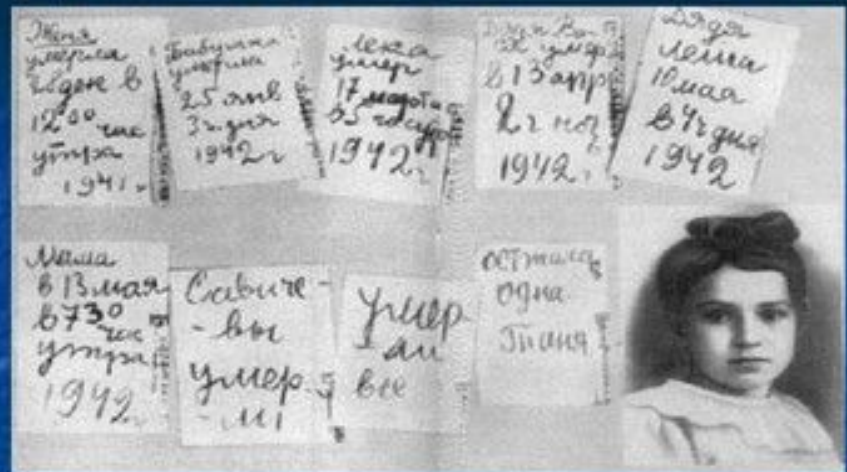 Женя
умерла
28 ден в
12⁰⁰ час
утра
1941 г
Бабушка
умерла
25 янв
3 ч. дня
1942 г
Лека
умер
17 марта
в 5 час утр
1942 г
Дядя Ва
умер
в 13 апр
2 ч ноч
1942 г
Дядя
Леша
10 мая
в 4 ч дня
1942
Мама
в 13 мая
в 7³⁰
час
утра
1942 г
Савиче-
-вы
умер
-ли
умер
-ли
все
осталась
одна
Таня